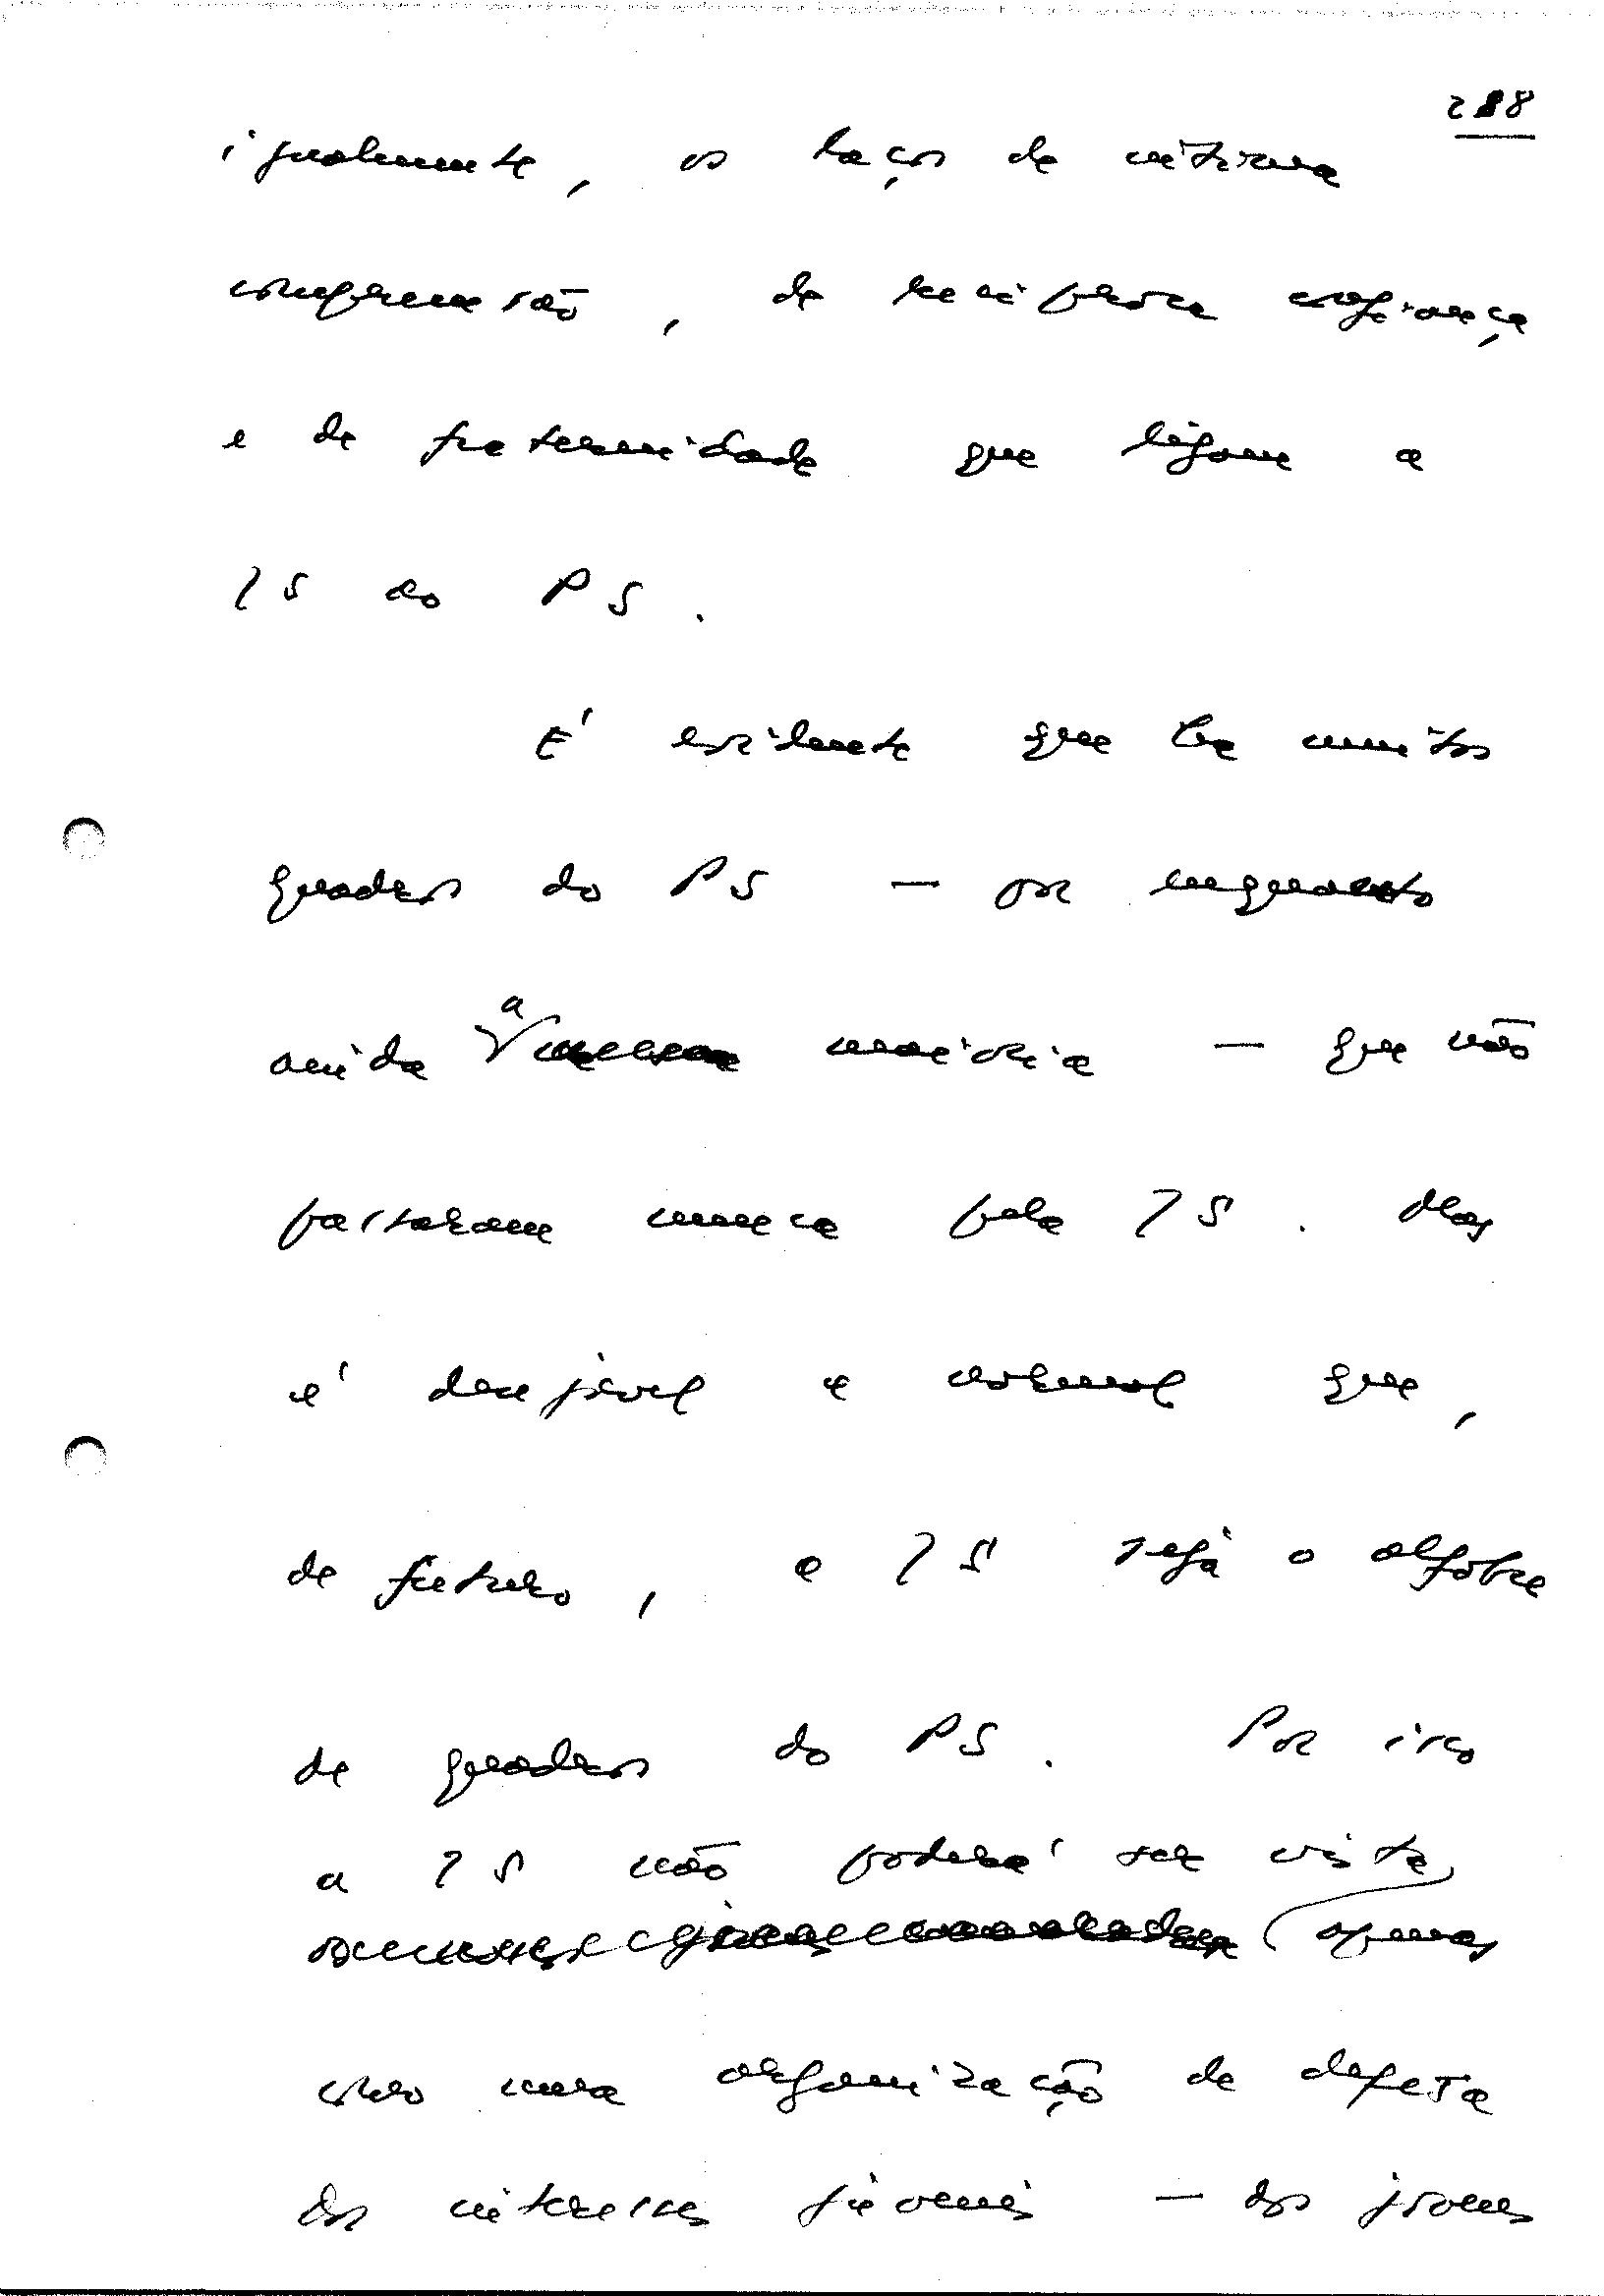 288
igualmente, os laços de íntima
compreensão, de recíproca confiança
e de fraternidade que ligam a
JS ao PS.
É evidente que há muitos
quadros do PS — por enquanto
ainda a maioria — que não
passaram nunca pela JS. Mas
é desejável e normal que,
de futuro, a JS seja o alfobre
de quadros do PS. Por isso
a JS não poderá ser vista,
apenas
como uma organização de defesa
dos interesses juvenis — dos jovens